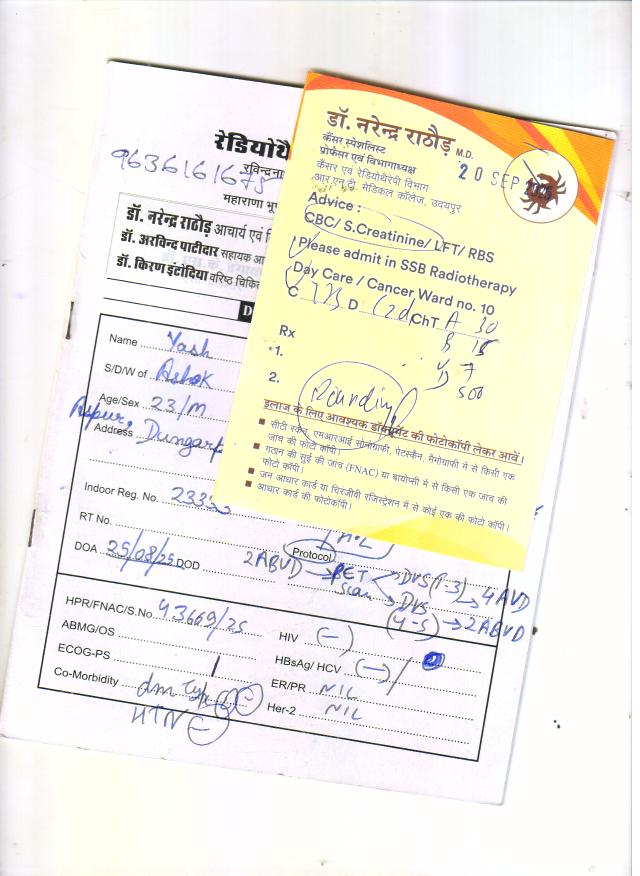 रेडियोथै
9636161675
रविन्द्रना
महाराणा भू
डॉ. नरेन्द्र राठौड़ आचार्य एवं
डॉ. अरविन्द पाटीदार सहायक आ
डॉ. किरण इंटोदिया वरिष्ठ चिकि
D
Name Yash
S/D/W of Ashok
Age/Sex 23/M
Address Dungarp
Indoor Reg. No. 2333
RT No.
DOA 25/08/25 DOD
Protocol
2ABVD → PET Scan
DVS (1-3) → 4 AVD
DVS (4-5) → 2ABVD
HPR/FNAC/S.No 43669/25
ABMG/OS
ECOG-PS 1
Co-Morbidity dm Type
HTN
HIV (-)
HBsAg/ HCV (-)
ER/PR NIL
Her-2 NIL
डॉ. नरेन्द्र राठौड़ M.D.
कैंसर स्पेशलिस्ट
प्रोफेसर एवं विभागाध्यक्ष
कैंसर एवं रेडियोथैरेपी विभाग
आर.एन.टी. मेडिकल कॉलेज, उदयपुर
20 SEP 2025
Advice :
CBC/ S.Creatinine/ LFT/ RBS
Please admit in SSB Radiotherapy
Day Care / Cancer Ward no. 10
C D ChT A 30
B 15
V 7
D 500
Rx
1.
2.
इलाज के लिए आवश्यक डॉक्यूमेंट की फोटोकॉपी लेकर आवें।
सीटी स्कैन, एमआरआई सोनोग्राफी, पेटस्कैन, मैमोग्राफी में से किसी एक
जांच की फोटो कॉपी।
गठान की सुई की जांच (FNAC) या बायोप्सी में से किसी एक जांच की
फोटो कॉपी।
जन आधार कार्ड या चिरंजीवी रजिस्ट्रेशन में से कोई एक की फोटो कॉपी।
आधार कार्ड की फोटोकॉपी।